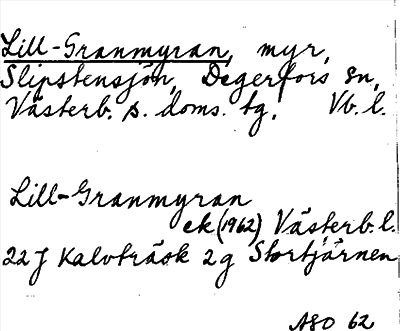 Lill-Granmyran, myr,
Slipstensjön, Degerfors sn,
Västerb. s. doms. tg. Vb. l.
Lill-Granmyran
ek (1962) Västerb. l.
22 J Kalvträsk 2 g Stortjärnen
ASO 62